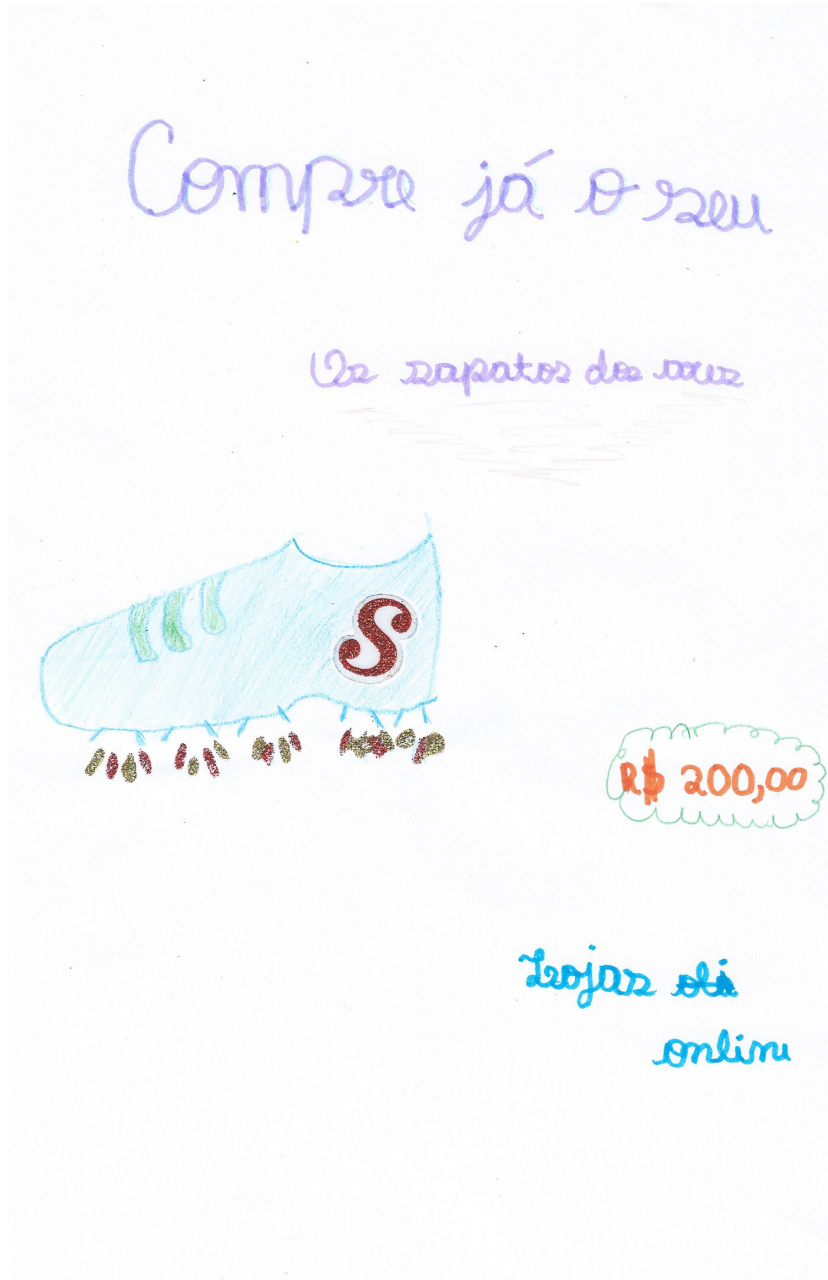 Compre já o seu
Os sapatos dos
S
R$ 200,00
Lojas
online